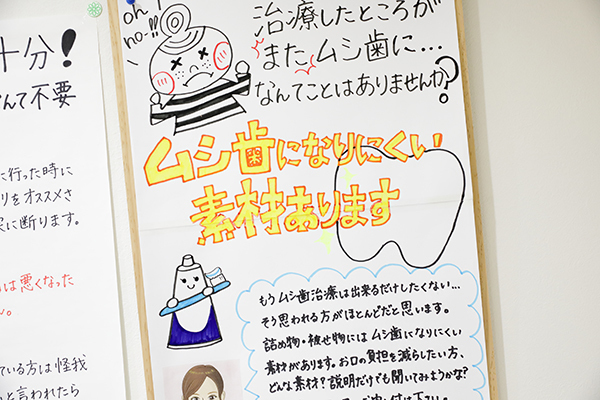 十分!
んて不要
に行った時に
リをオススメさ
に断ります。
は悪くなった
ん。
ている方は怪我
と言われたら
oh!
no-!!
治療したところが
また ムシ歯に…
なんてことはありませんか?
ムシ歯になりにくい
素材あります
もうムシ歯治療は出来るだけしたくない…
そう思われる方がほとんどだと思います。
詰め物・被せ物にはムシ歯になりにくい
素材があります。お口の負担を減らしたい方、
どんな素材?説明だけでも聞いてみようかな?